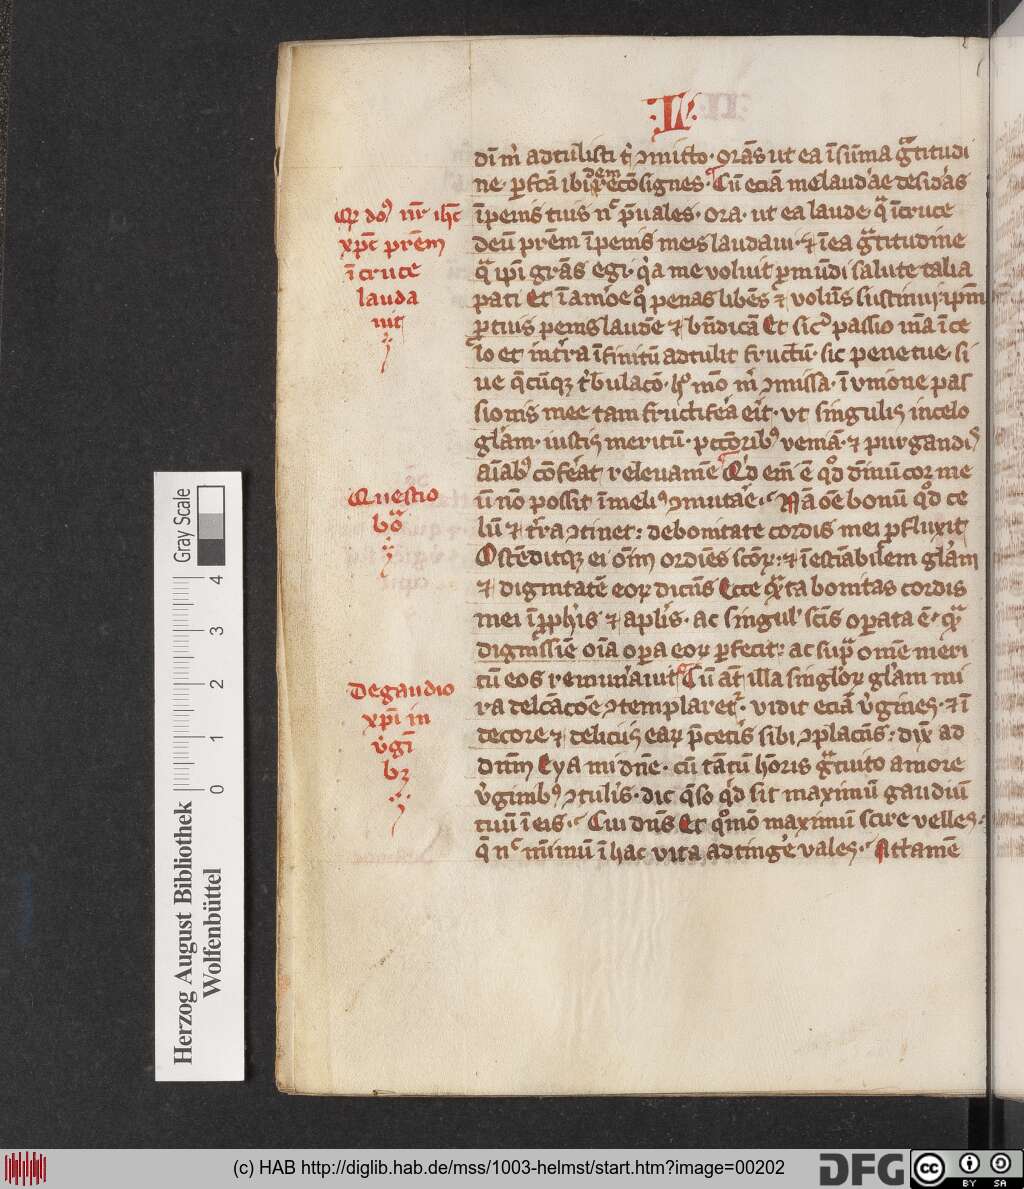 ·L·
dī m̄ adtulisti t̄ ꝯmitto · orās ut ea ī sūma gr̄atitudi
ne ꝑfcā ibidem recōsignes · Cū eciā me laudāe desidās
ī penis tuis nc̄ p̄uales · ora · ut ea laude q̄ ī cruce
deū pr̄em ī penis meis laudaui · ⁊ ī ea gr̄atitudine
q̄ ip̄i gr̄as egi · q̇a me voluit ꝑ mūdi salute talia
pati Et ī amōe quo penas libēs ⁊ volūs sustinui ip̄m
ꝓ tuis penis laudē ⁊ bn̄dicā Et sic᷒ passio m̄a ī ce
lo et ī tr̄ra īfinitū adtulit fructū · sic pene tue · si
ue q̄cūqꝫ t̄bulacō · h᷒ mō m̄ ꝯmissa · ī vnione pas
sionis mee tam fructifēa eit̄ · vt singulis in celo
glām · iustis meritū · pctōribꝰ veniā · ⁊ purgandis
aīabꝰ cōfēat releuamē Qd em̄ ē qd dīnū cor me
ū nō possit ī meliꝰ ꝯmutāe · Nā oē bonū qd ce
lū ⁊ tr̄a ꝯtinet : de bonitate cordis mei ꝓfluxit
Ostēditqꝫ ei oīm ordīēs scōꝝ : ⁊ īestiābilem glām
⁊ dignitatē eoꝝ dicēs Ecce q̄nta bonitas cordis
mei ī ꝓphīs ⁊ aplīs · ac singul᷒ scīs oꝑata ē · q̄
dignissīe oīa oꝑa eoꝝ ꝑfecit : ac supra omē meri
tū eos remun̄auit Cū aūt illa singloꝝ glām mi
ra delcācōe ꝯtemplaretur · vidit eciā v̇gines · ⁊ ī
decore ⁊ deliciis eaꝝ p̄ ceteis sibi ꝯplacēs : dix̄ ad
dnm̄ Eya mi dn̄e · cū tātū hōris gr̄atuito amore
v̇ginibꝰ ꝯtulis · dic q̄so qd sit maximū gaudiū
tuū ī eis · Cui dn̄s Et quomō maximū scire velles ·
q̄ nc̄ mīmū ī hac vita adtingēe vales · Attamē
Qr doꝰ nr̄ ihc̄
xp̄c pr̄em
ī cruce
lauda
uit
Questio
bōa
De gaudio
xp̄i in
v̇gī
bꝫ
Herzog August Bibliothek
Wolfenbüttel
Gray Scale
0 1 2 3 4
(c) HAB http://diglib.hab.de/mss/1003-helmst/start.htm?image=00202
DFG
cc BY SA